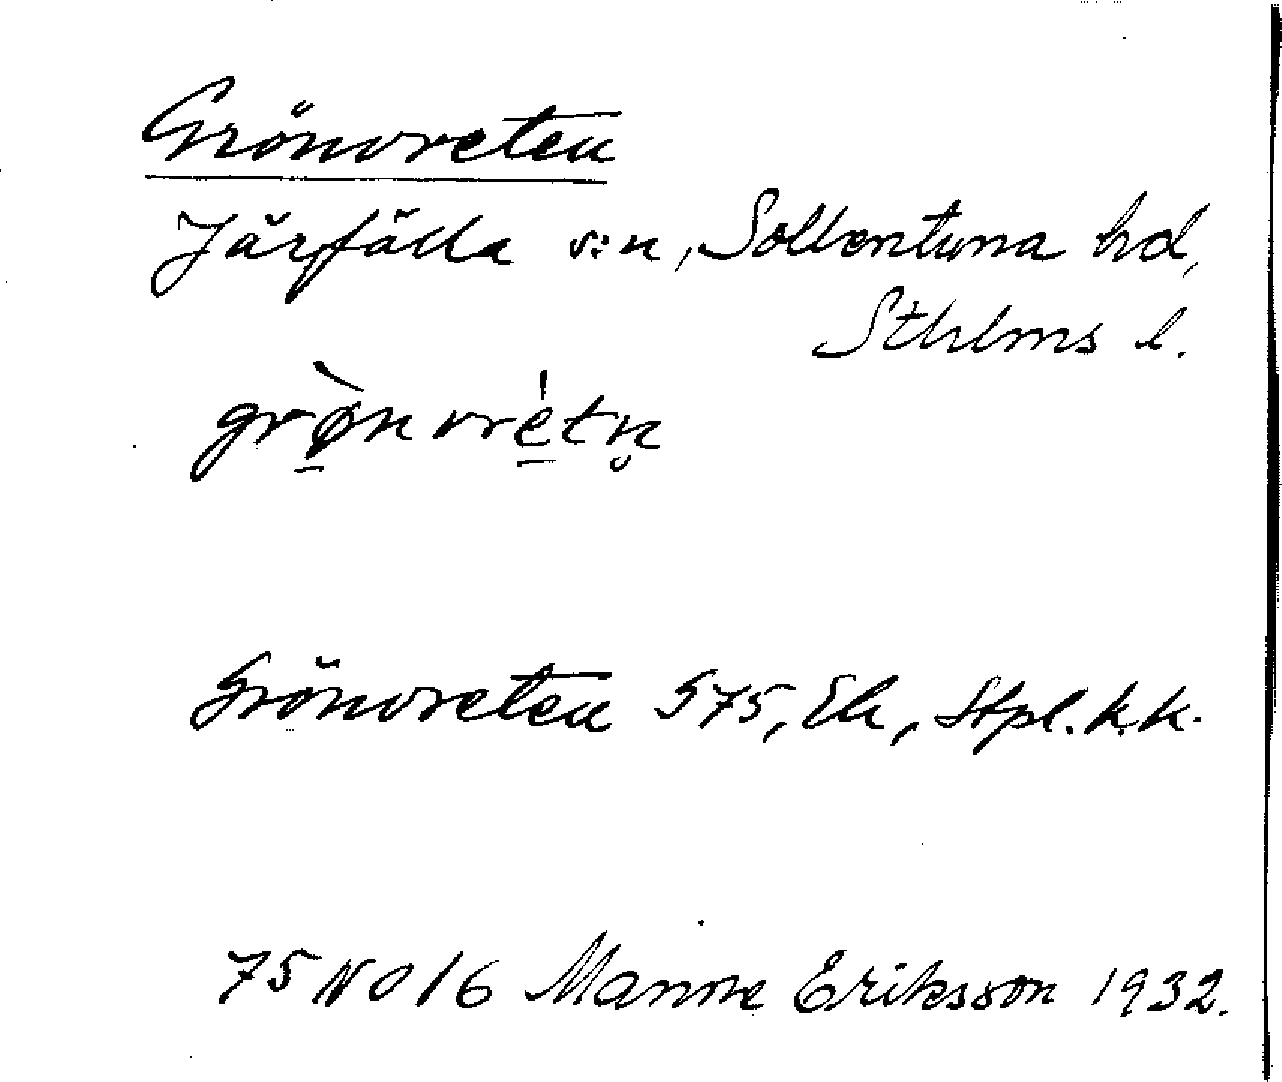 Grönvreten
Järfälla s:n, Sollentuna hd,
Sthlms l.
grø̠̀n vre̠̍tn̥
Grönvreten S75, Ek, Stpl. k.k.
75 NO 16 Manne Eriksson 1932.